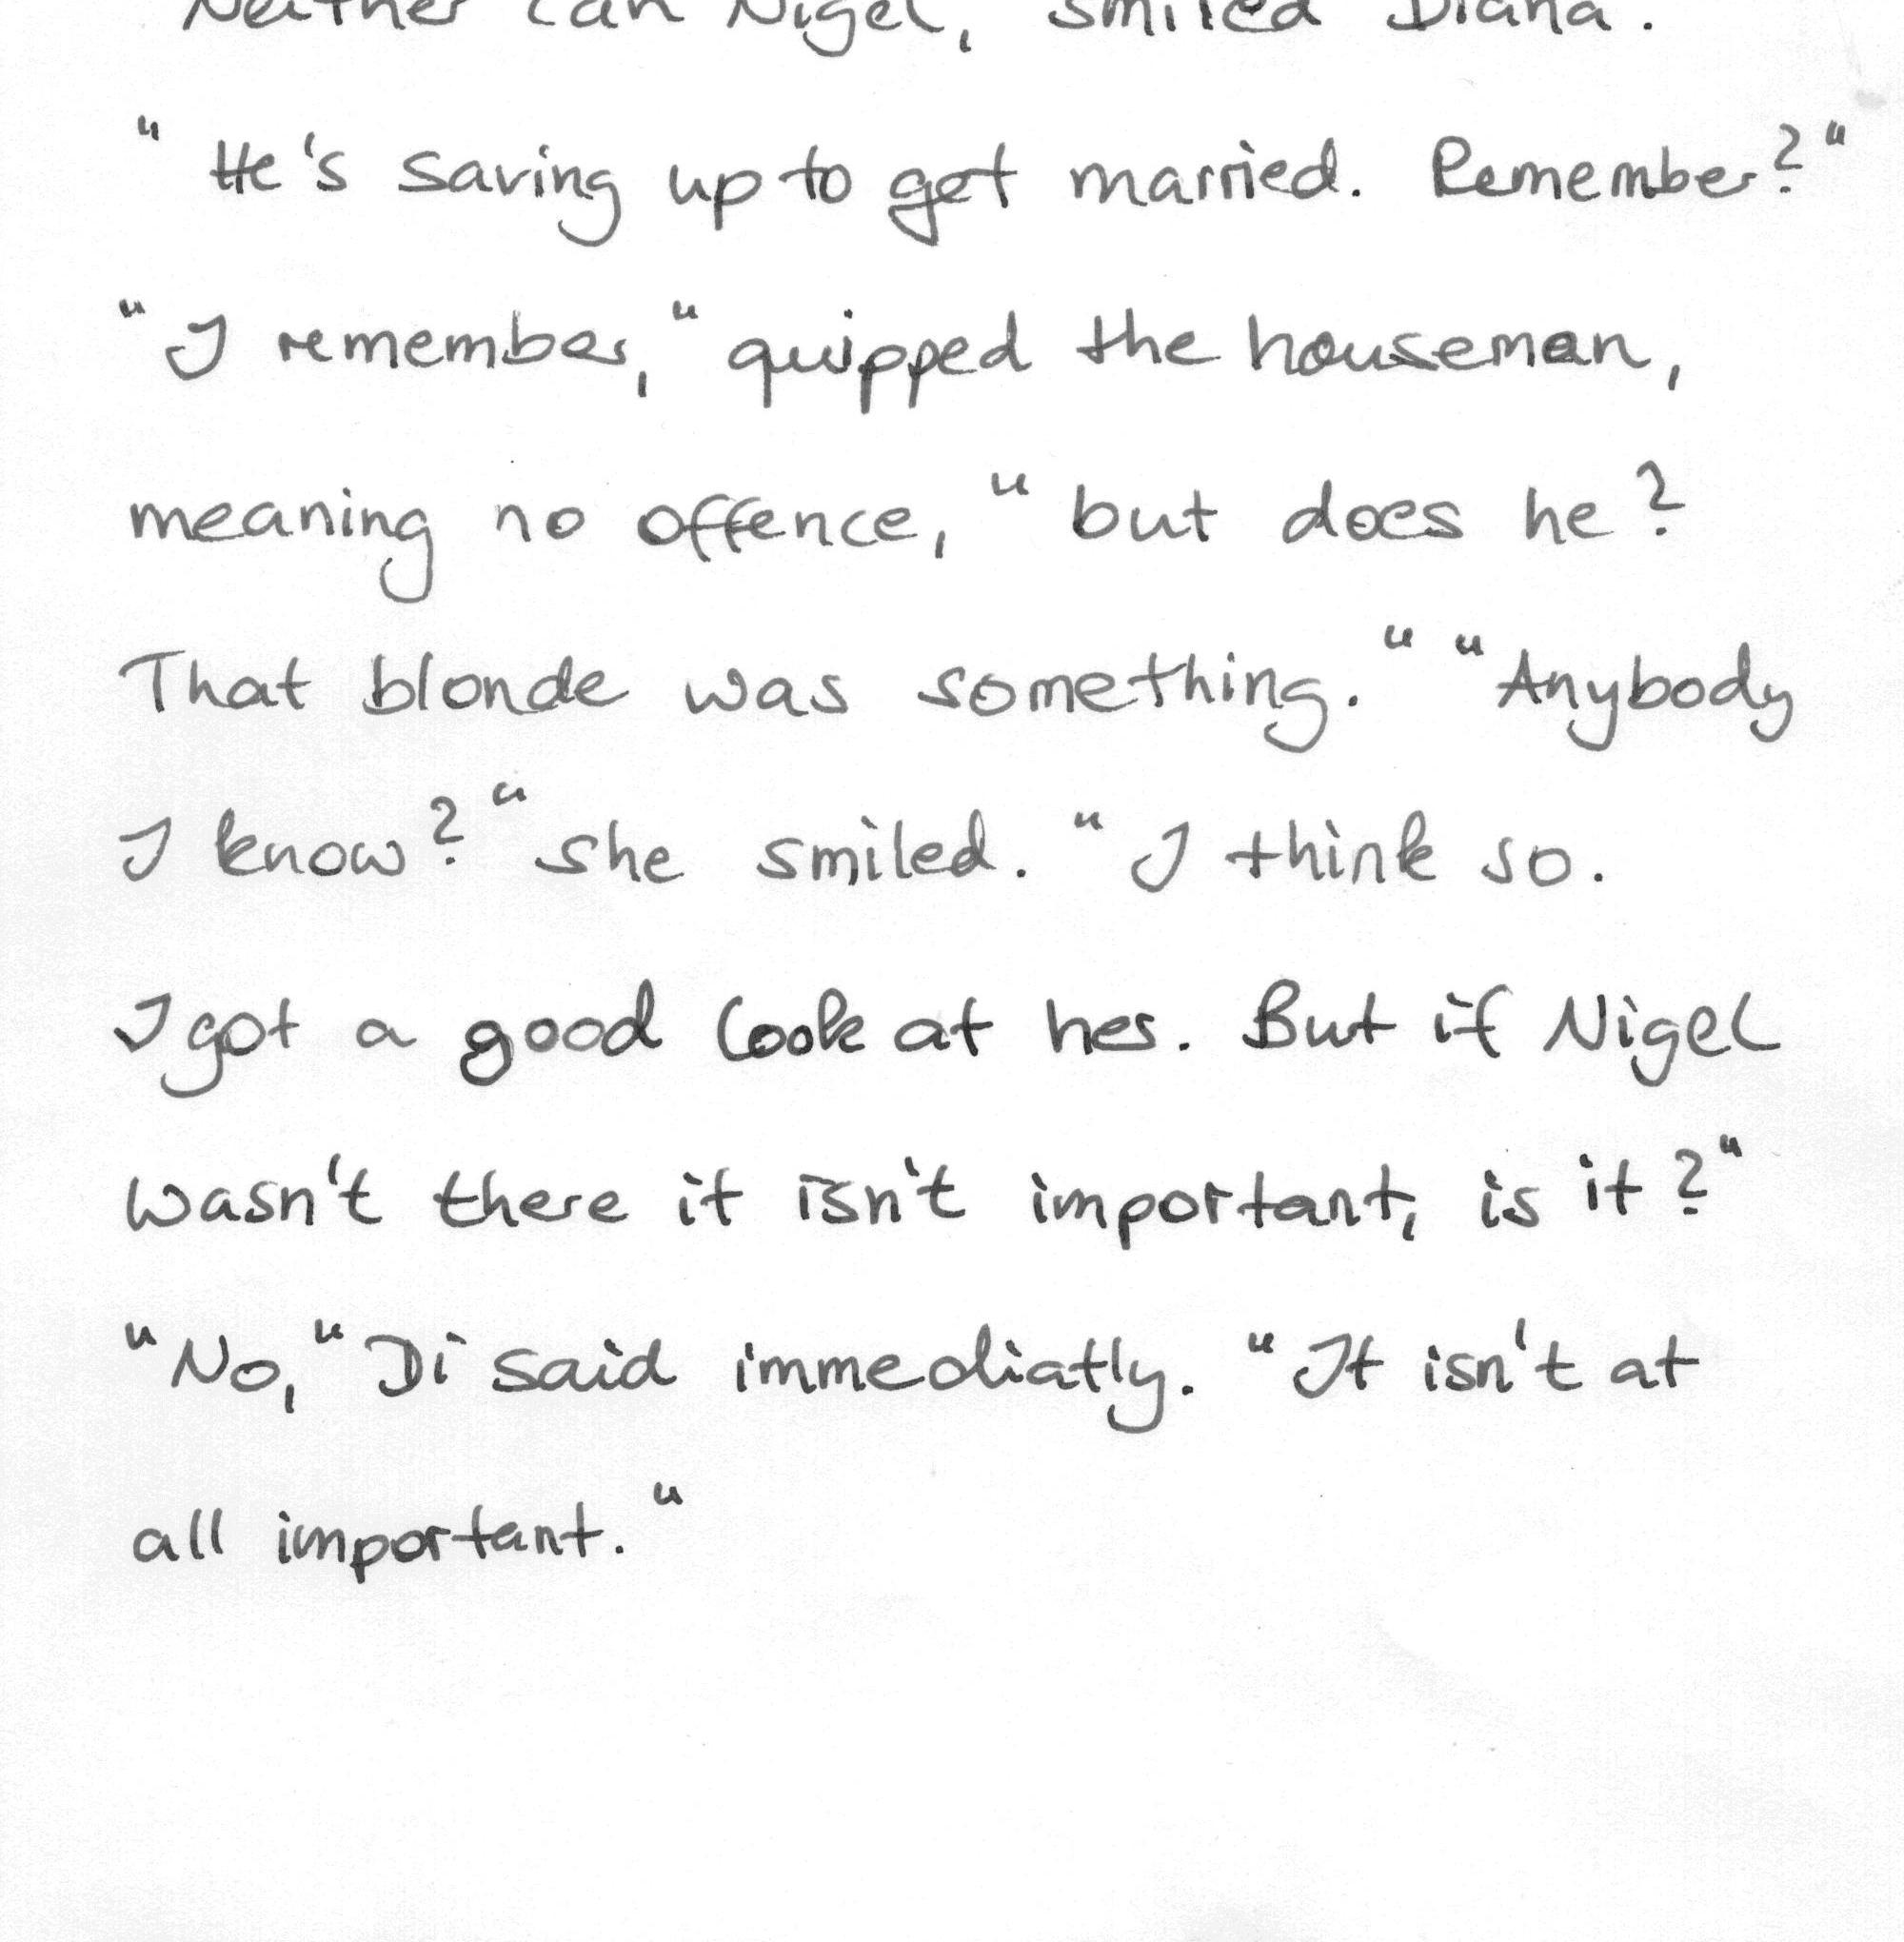 Neither can Nigel, smiled Diana.
"He's saving up to get married. Remember?"
"I remember," quipped the houseman,
meaning no offence, "but does he?
That blonde was something." "Anybody
I know?" she smiled. "I think so.
I got a good look at her. But if Nigel
wasn't there it isn't important, is it?"
"No," Di said immediatly. "It isn't at
all important."